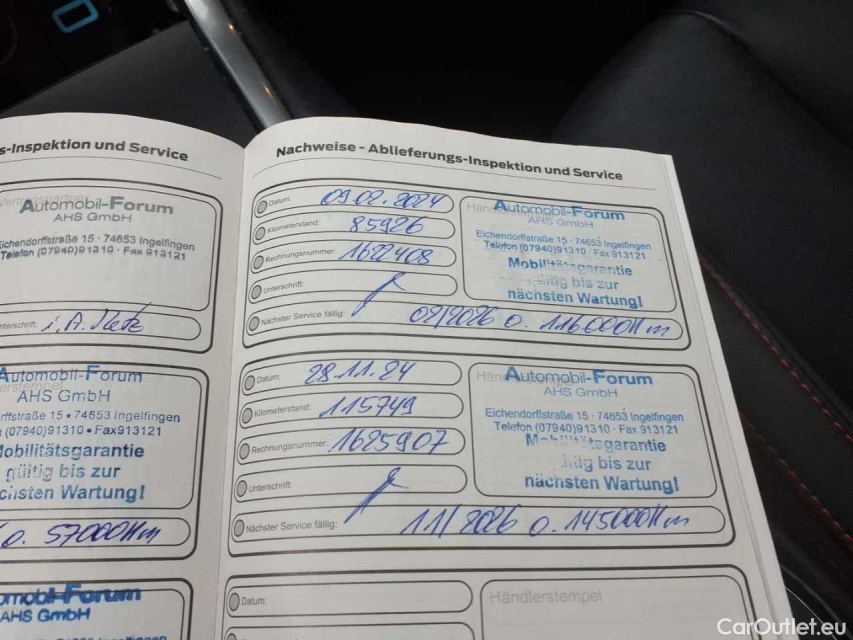 s-Inspektion und Service
Automobil-Forum
AHS GmbH
Eichendorffstraße 15 · 74653 Ingelfingen
Telefon (07940)91310 · Fax 913121
nterschrift: i.A.
Automobil-Forum
AHS GmbH
rffstraße 15 • 74653 Ingelfingen
(07940)91310 • Fax 913121
Mobilitätsgarantie
gültig bis zur
chsten Wartung!
o. 57000Km
omobil-Forum
AHS GmbH
Nachweise - Ablieferungs-Inspektion und Service
Datum: 09.02.2024
Kilometerstand: 85926
Rechnungsnummer: 1622408
Unterschrift:
Nächster Service fällig: 02/2026 o. 116000Km
Automobil-Forum
AHS GmbH
Eichendorffstraße 15 · 74653 Ingelfingen
Telefon (07940)91310 · Fax 913121
Mobilitätsgarantie
gültig bis zur
nächsten Wartung!
Datum: 28.11.24
Kilometerstand: 115749
Rechnungsnummer: 1625907
Unterschrift:
Nächster Service fällig: 11/2026 o. 145000Km
Automobil-Forum
AHS GmbH
Eichendorffstraße 15 · 74653 Ingelfingen
Telefon (07940)91310 · Fax 913121
Mobilitätsgarantie
gültig bis zur
nächsten Wartung!
Datum:
Händlerstempel
CarOutlet.eu